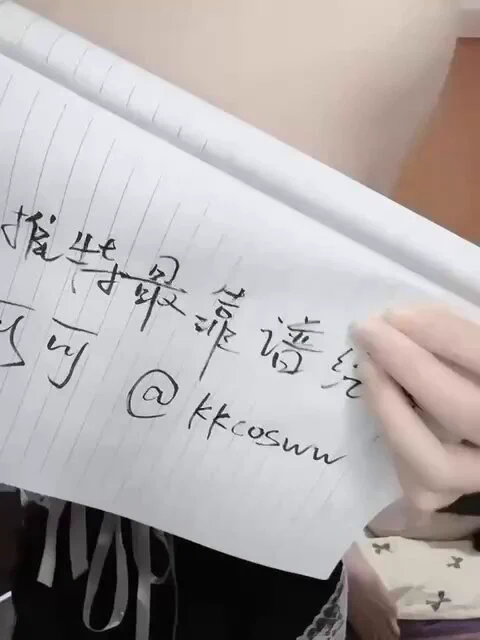 推特最靠谱
可可 @kkcosww